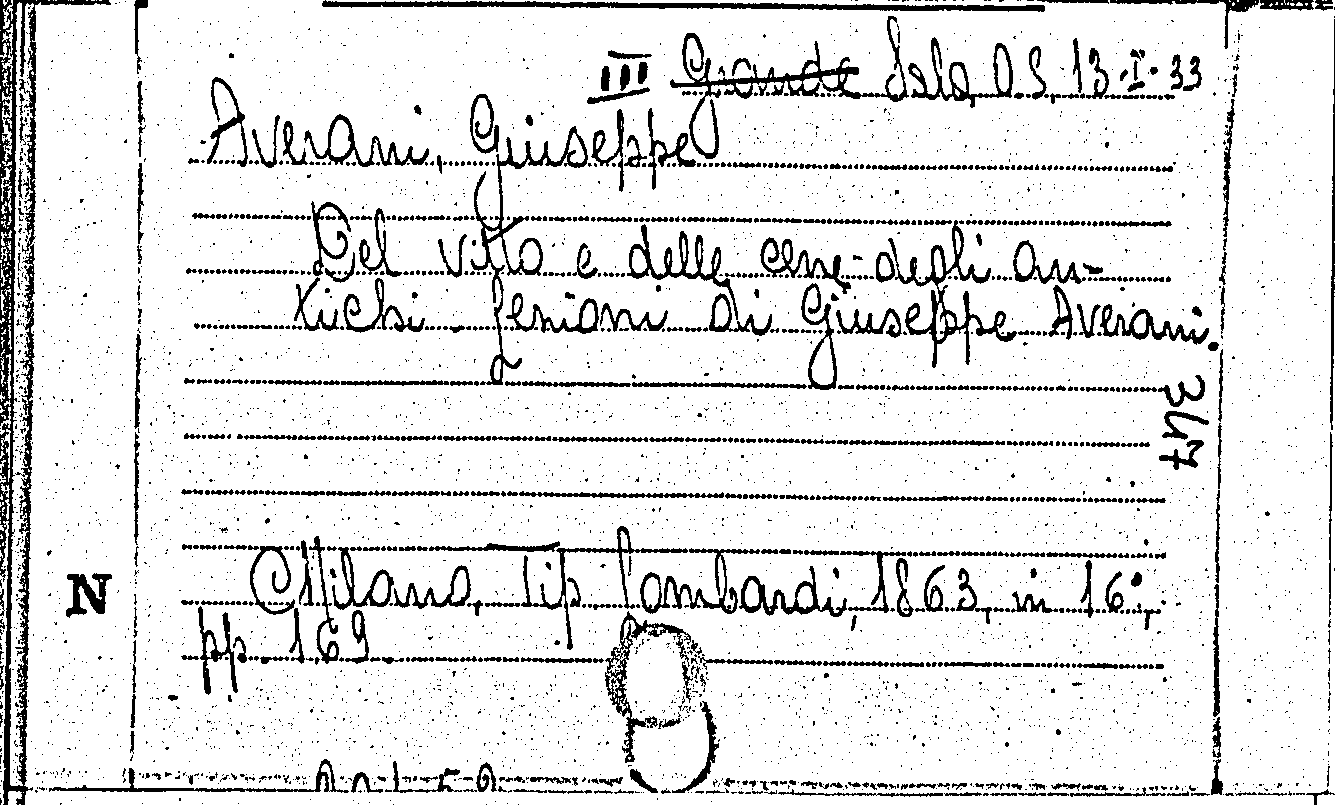 III Grande Sala, O.S. 13.I.33
Averani, Giuseppe
Del vitto e delle cene degli an-
tichi. Lezioni di Giuseppe Averani.
347
Milano, Tip. Lombardi, 1863, in 16°,
N
pp. 169.